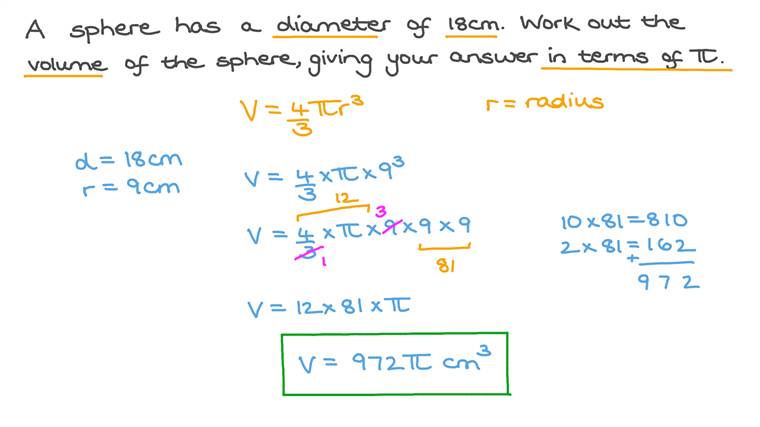 A sphere has a diameter of 18cm. Work out the
volume of the sphere, giving your answer in terms of π.
V = 4/3 πr³
r = radius
d = 18cm
r = 9cm
V = 4/3 × π × 9³
12
3
V = 4/3 × π × 9 × 9 × 9
1
81
10 × 81 = 810
2 × 81 = 162
+
972
V = 12 × 81 × π
V = 972π cm³